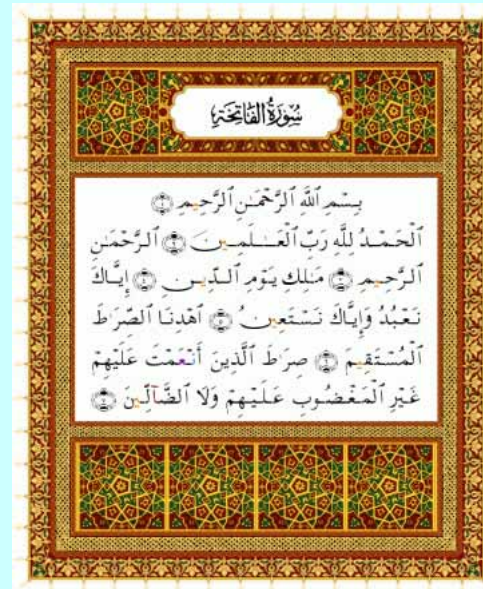 سُورَةُ الفَاتِحَةِ
بِسْمِ ٱللَّهِ ٱلرَّحْمَٰنِ ٱلرَّحِيمِ ۝١
ٱلْحَمْدُ لِلَّهِ رَبِّ ٱلْعَٰلَمِينَ ۝٢ ٱلرَّحْمَٰنِ
ٱلرَّحِيمِ ۝٣ مَٰلِكِ يَوْمِ ٱلدِّينِ ۝٤ إِيَّاكَ
نَعْبُدُ وَإِيَّاكَ نَسْتَعِينُ ۝٥ ٱهْدِنَا ٱلصِّرَٰطَ
ٱلْمُسْتَقِيمَ ۝٦ صِرَٰطَ ٱلَّذِينَ أَنْعَمْتَ عَلَيْهِمْ
غَيْرِ ٱلْمَغْضُوبِ عَلَيْهِمْ وَلَا ٱلضَّآلِّينَ ۝٧